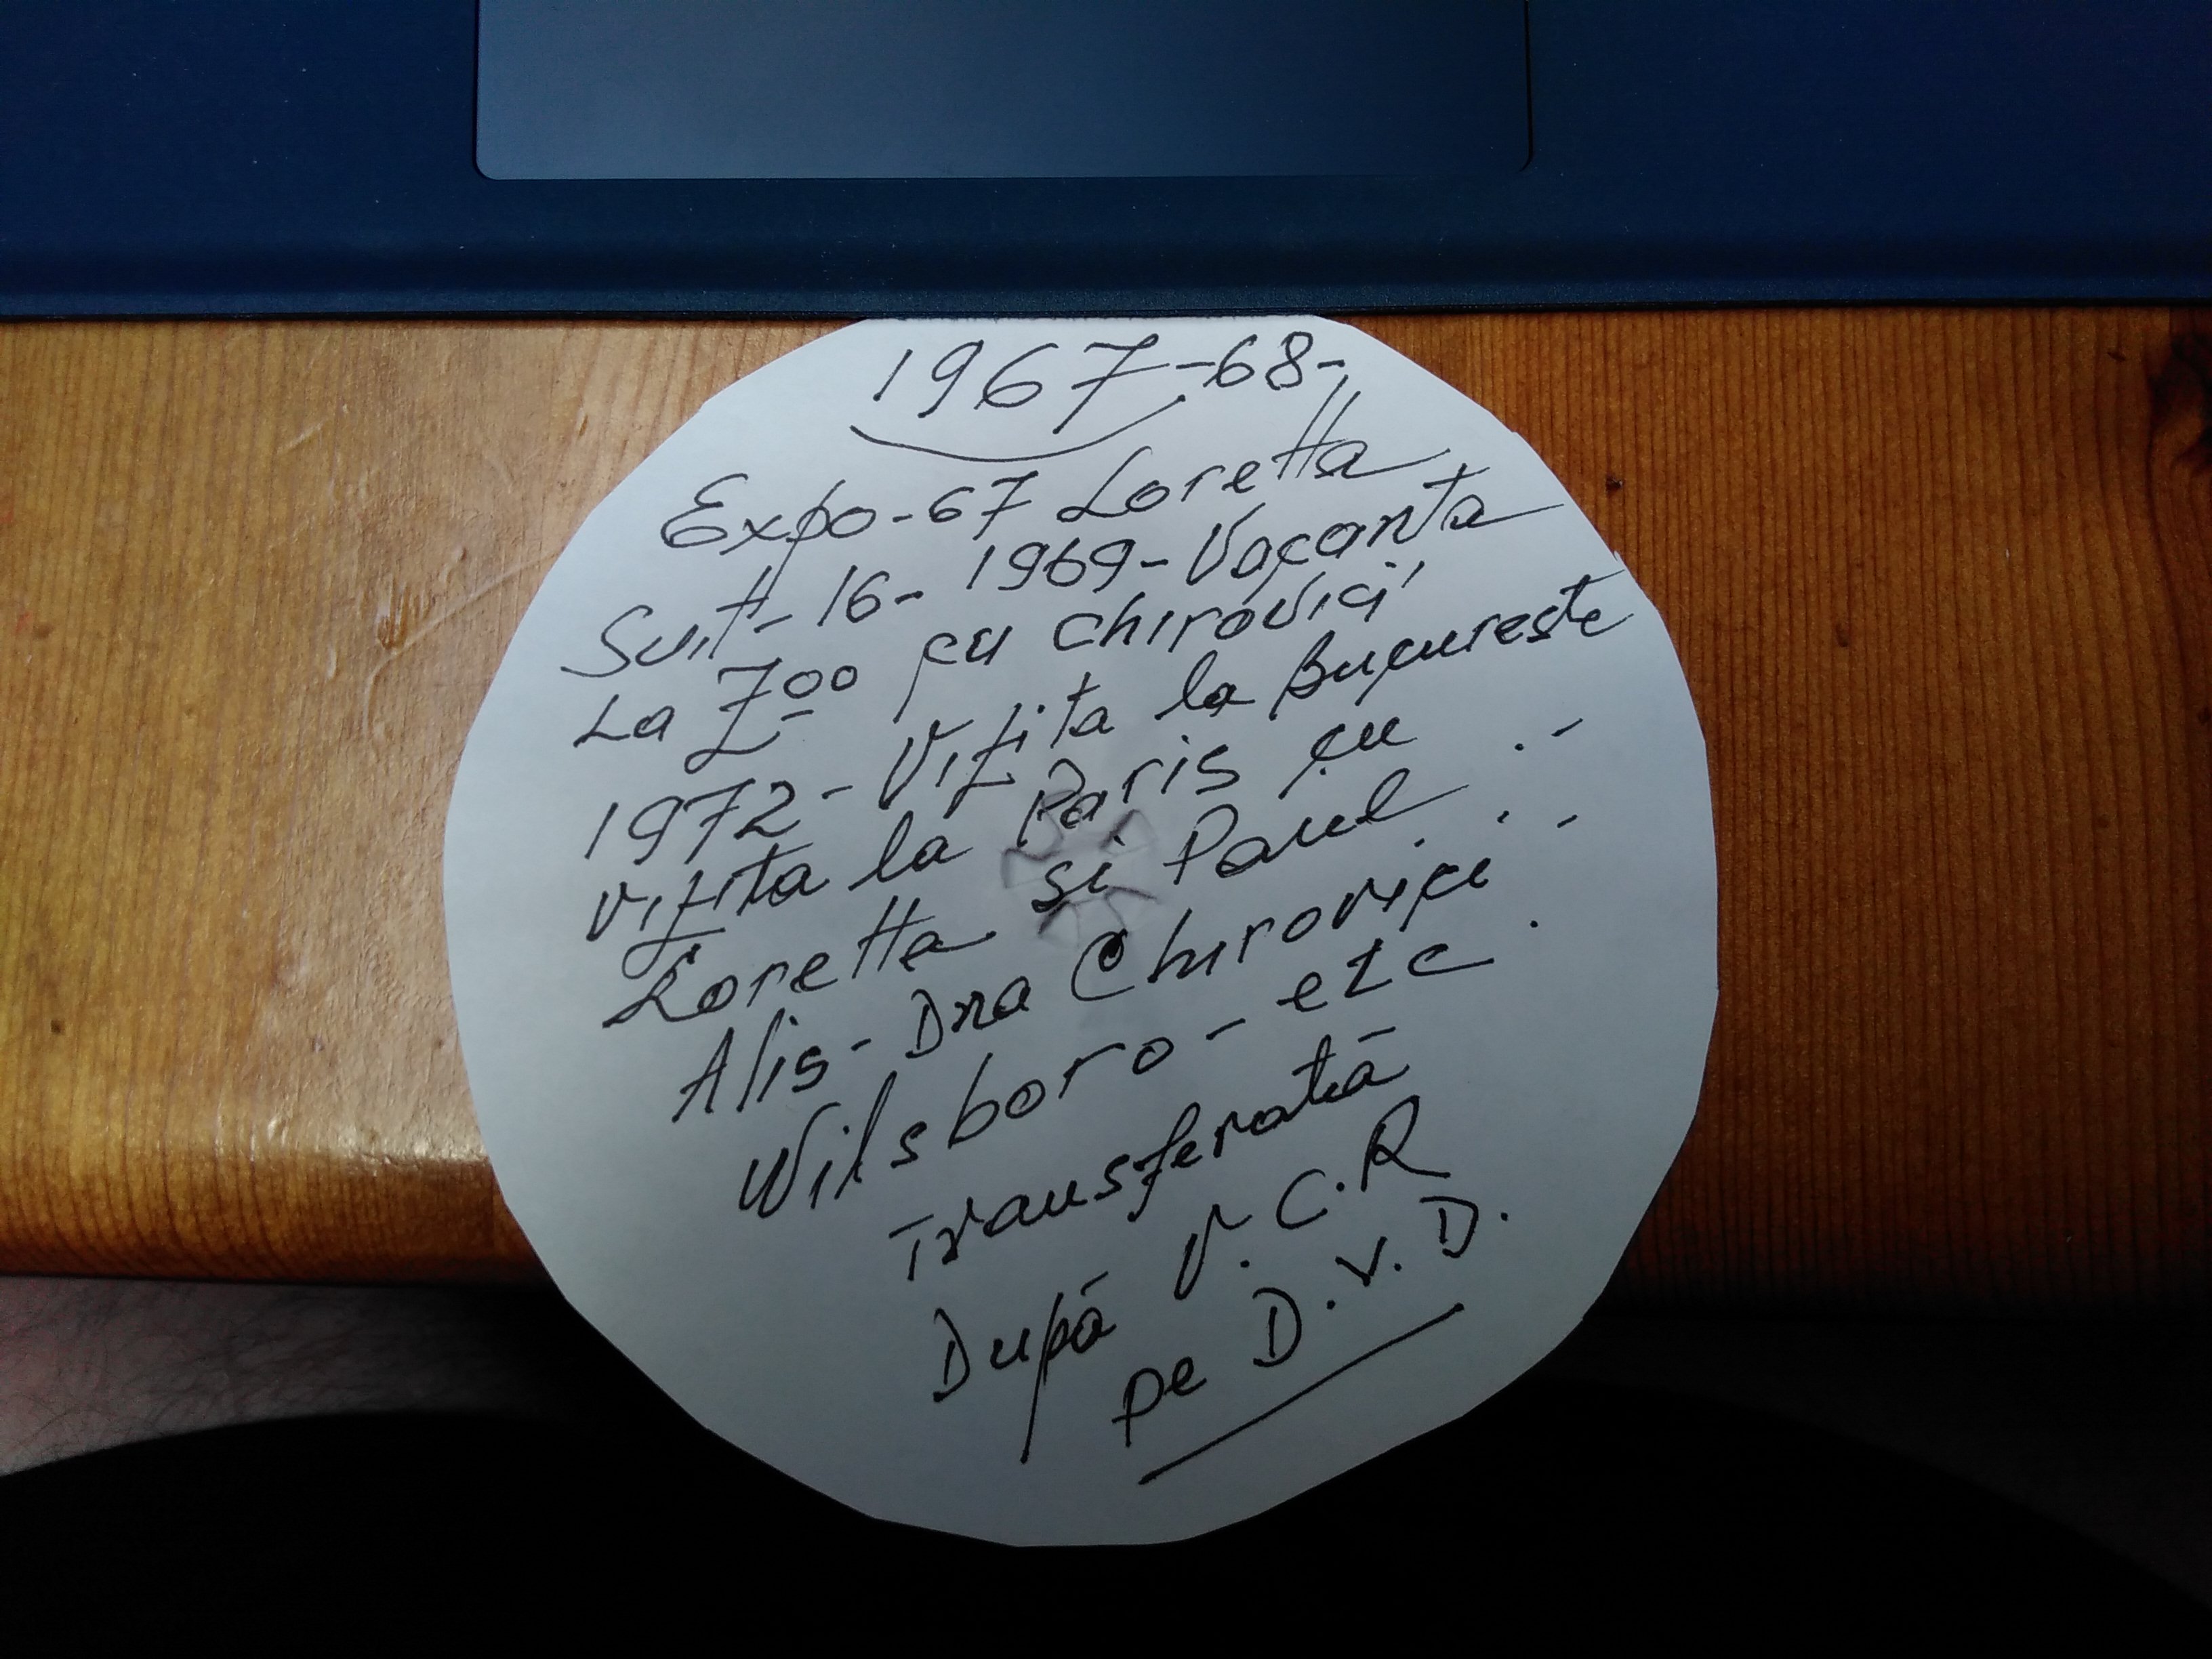 1967-68-
Expo-67 Loretta
Suit-16-1969-Vacanta
La Zoo cu chirovici
1972-Vizita la Bucureste
Vizita la Paris cu
Loretta si Paul
Alis-Dna Chirovici
Wilsboro-etc.
Transferată
După V.C.R
pe D.V.D.